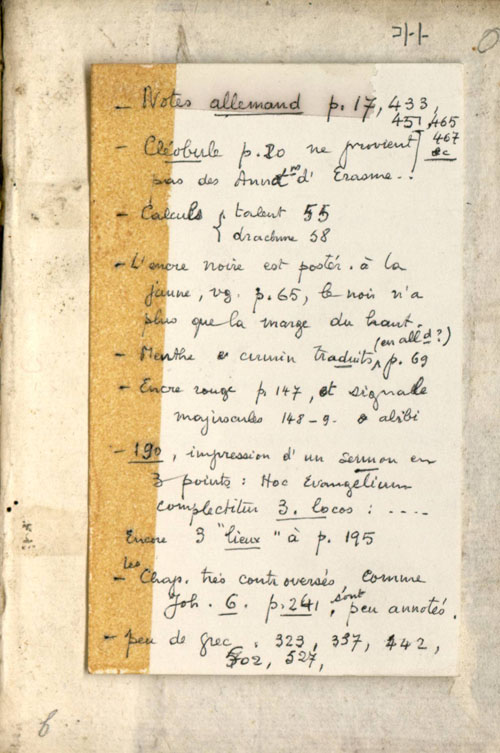 – Notes allemand p. 17, 433,
451, 465
467
&c
– Cléobule p. 20 ne provient
pas des Annotnᵉˢ d' Erasme..
– Calculs { talent 55
drachme 58
– L'encre noire est postér. à la
jaune, vg. p. 65, le noir n'a
plus que la marge du haut.
(en alld?)
– Menthe & cumin traduits, p. 69
– Encre rouge p 147, et signale
majuscules 148-9. & alibi
– 190, impression d'un sermon en
3 points: Hoc Evangelium
complectitur 3. locos: ....
Encore 3 "lieux" à p. 195
– les Chap. très controversés, comme
Joh. 6. p. 241, sont peu annotés.
– peu de grec. 323, 337, 442,
502, 527,
6